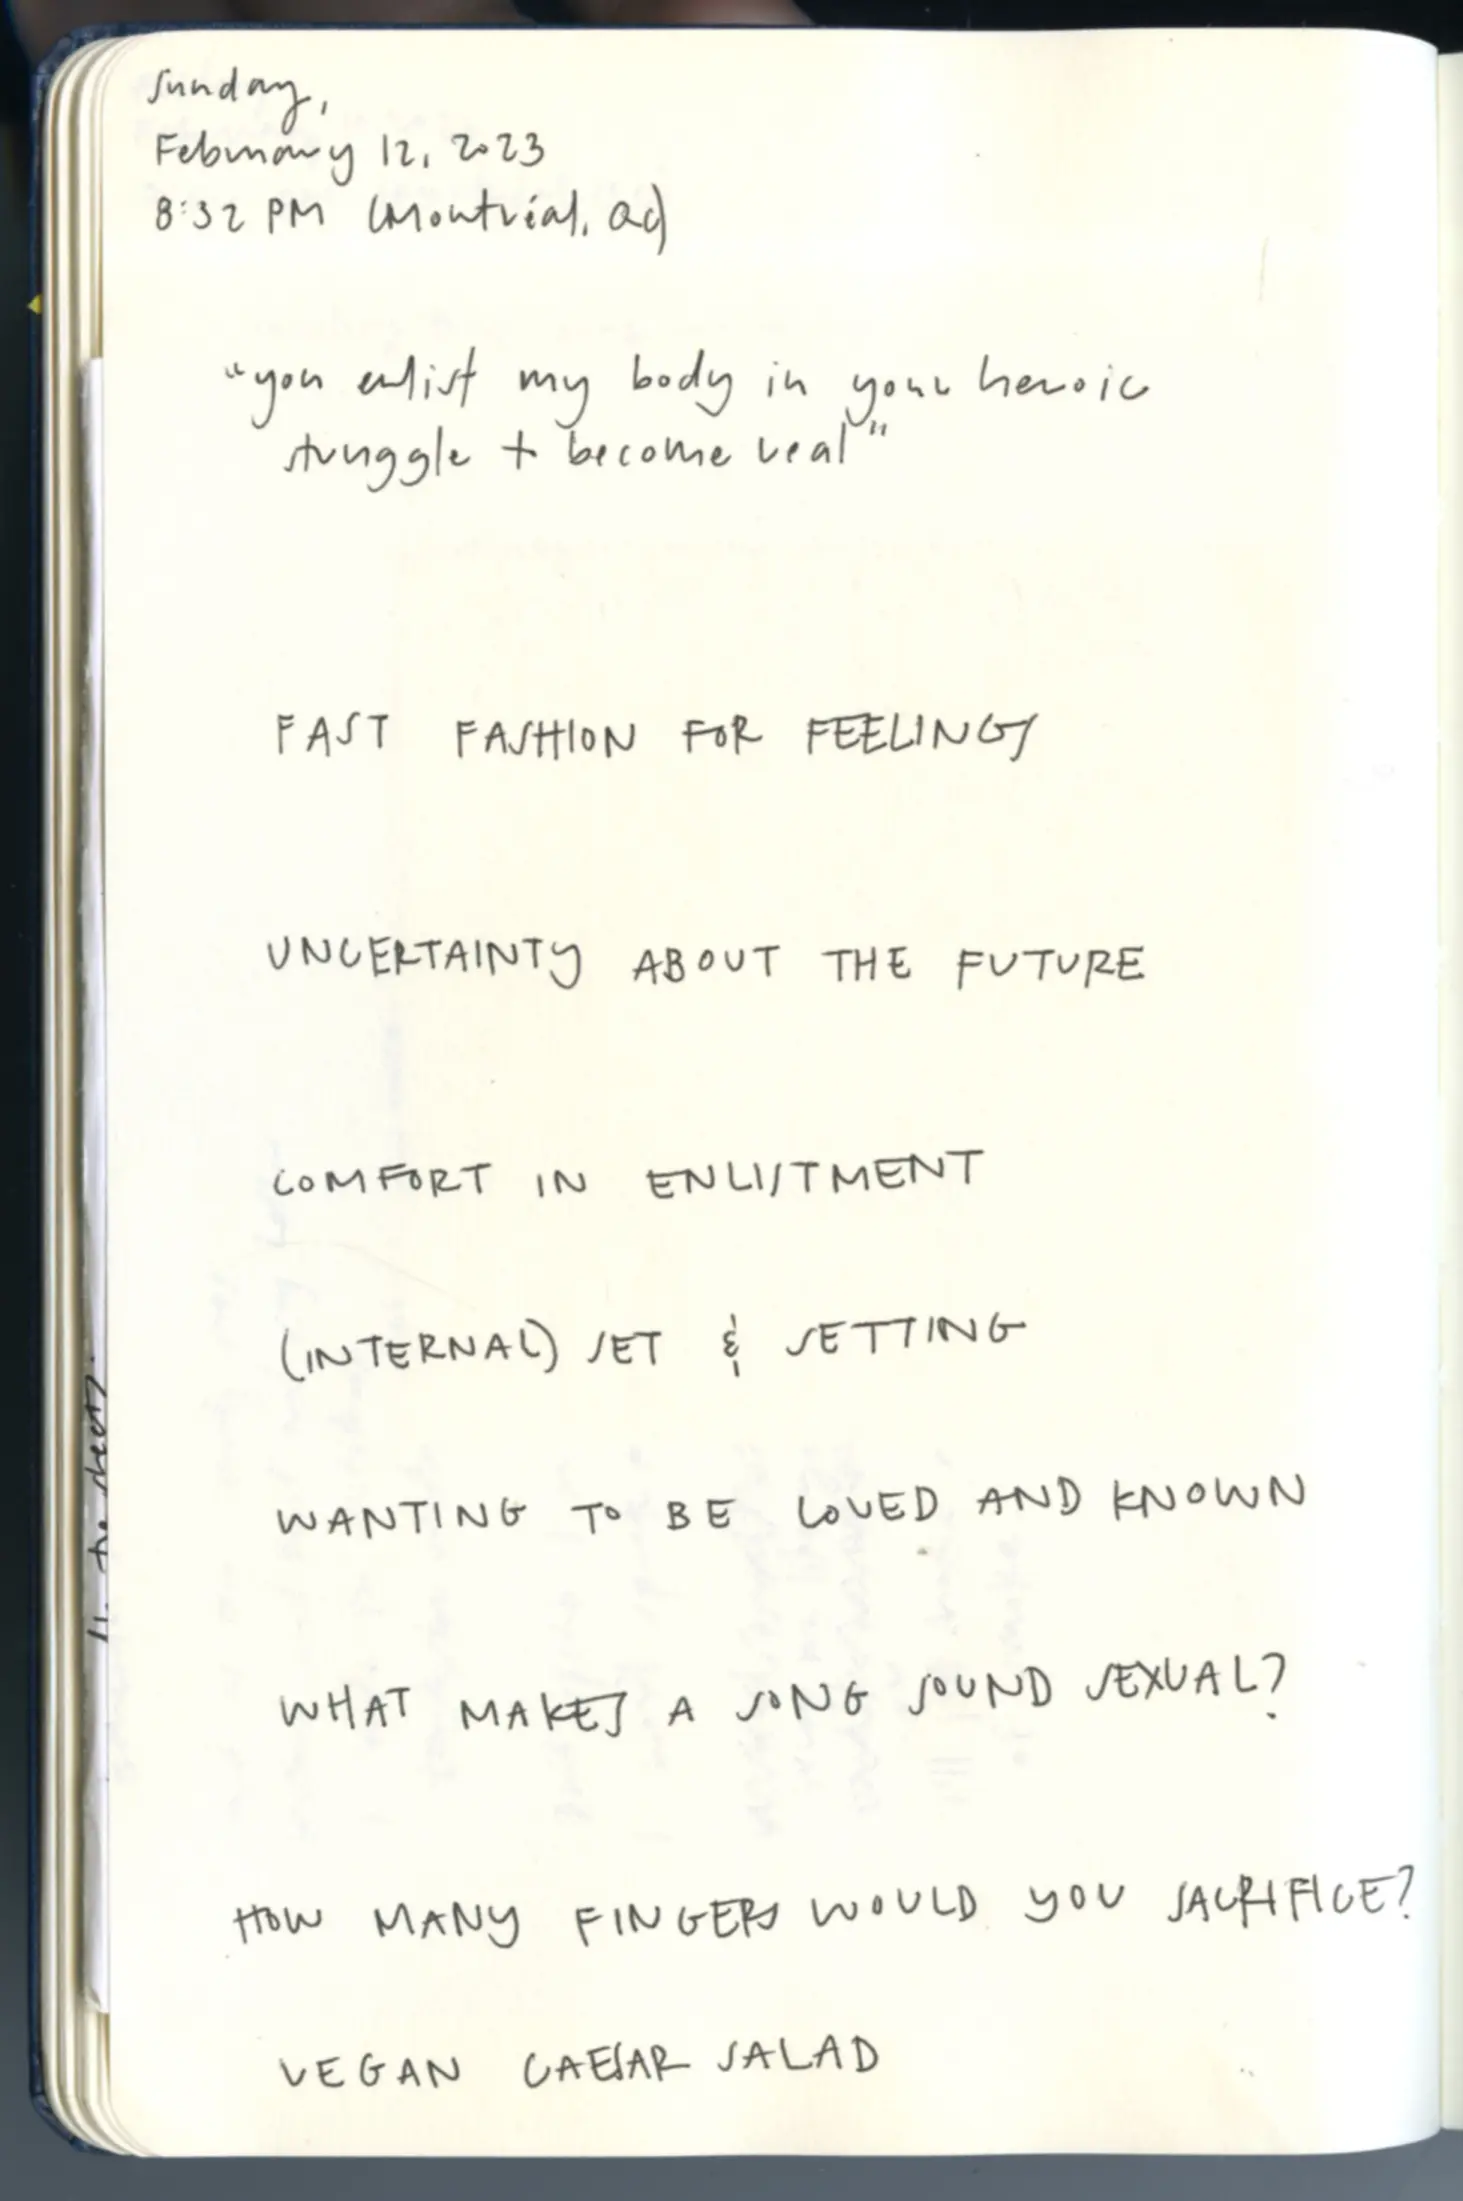 Sunday,
February 12, 2023
8:32 PM (Montréal, QC)
"you enlist my body in your heroic
struggle + become real"
FAST FASHION FOR FEELINGS
UNCERTAINTY ABOUT THE FUTURE
COMFORT IN ENLISTMENT
(INTERNAL) SET & SETTING
WANTING TO BE LOVED AND KNOWN
WHAT MAKES A SONG SOUND SEXUAL?
HOW MANY FINGERS WOULD YOU SACRIFICE?
VEGAN CAESAR SALAD